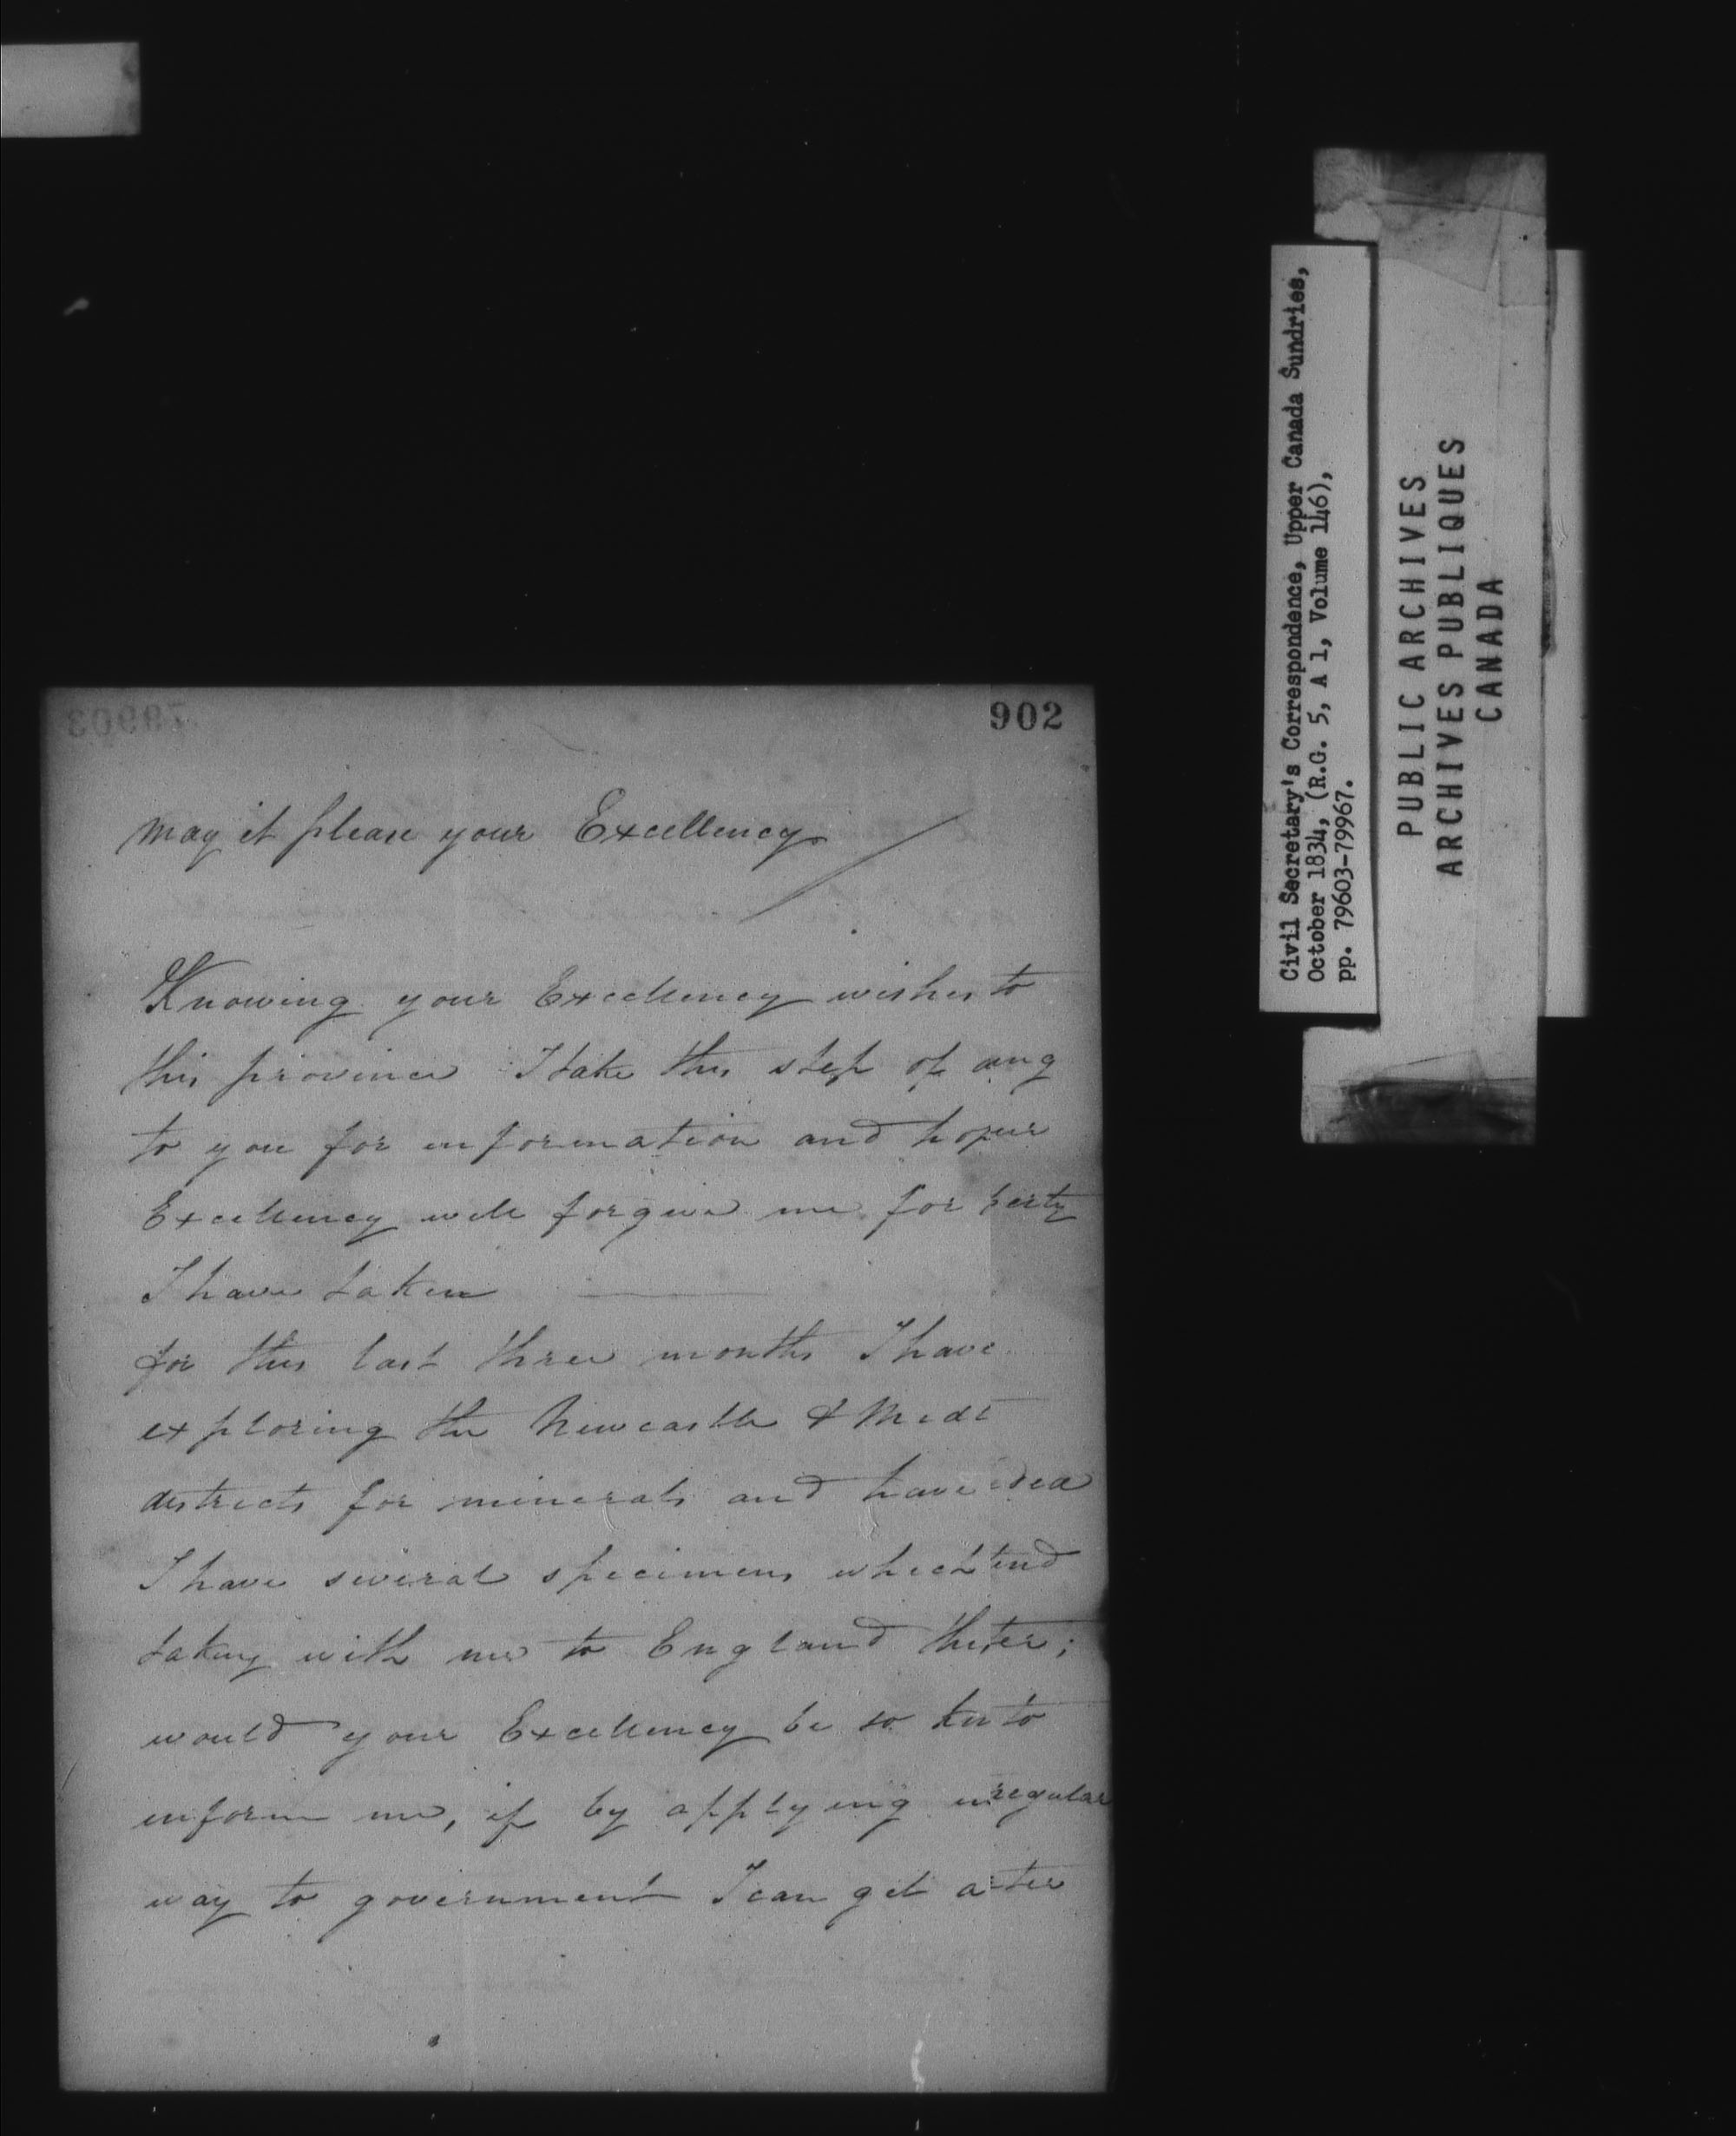 902
may it please your Excellency
Knowing your Excellency wishes to
this province I take this step of
to you for information and
Excellency will forgive me for
I have taken
for this last three months I have
exploring the Newcastle & Midl
districts for minerals and have idea
I have several specimens which
taking with me to England
would your Excellency be so to
inform me, if by applying in regular
way to government I can get a
Civil Secretary's Correspondence, Upper Canada Sundries,
October 1834, (R.G. 5, A 1, Volume 146),
pp. 79603-79967.
PUBLIC ARCHIVES
ARCHIVES PUBLIQUES
CANADA